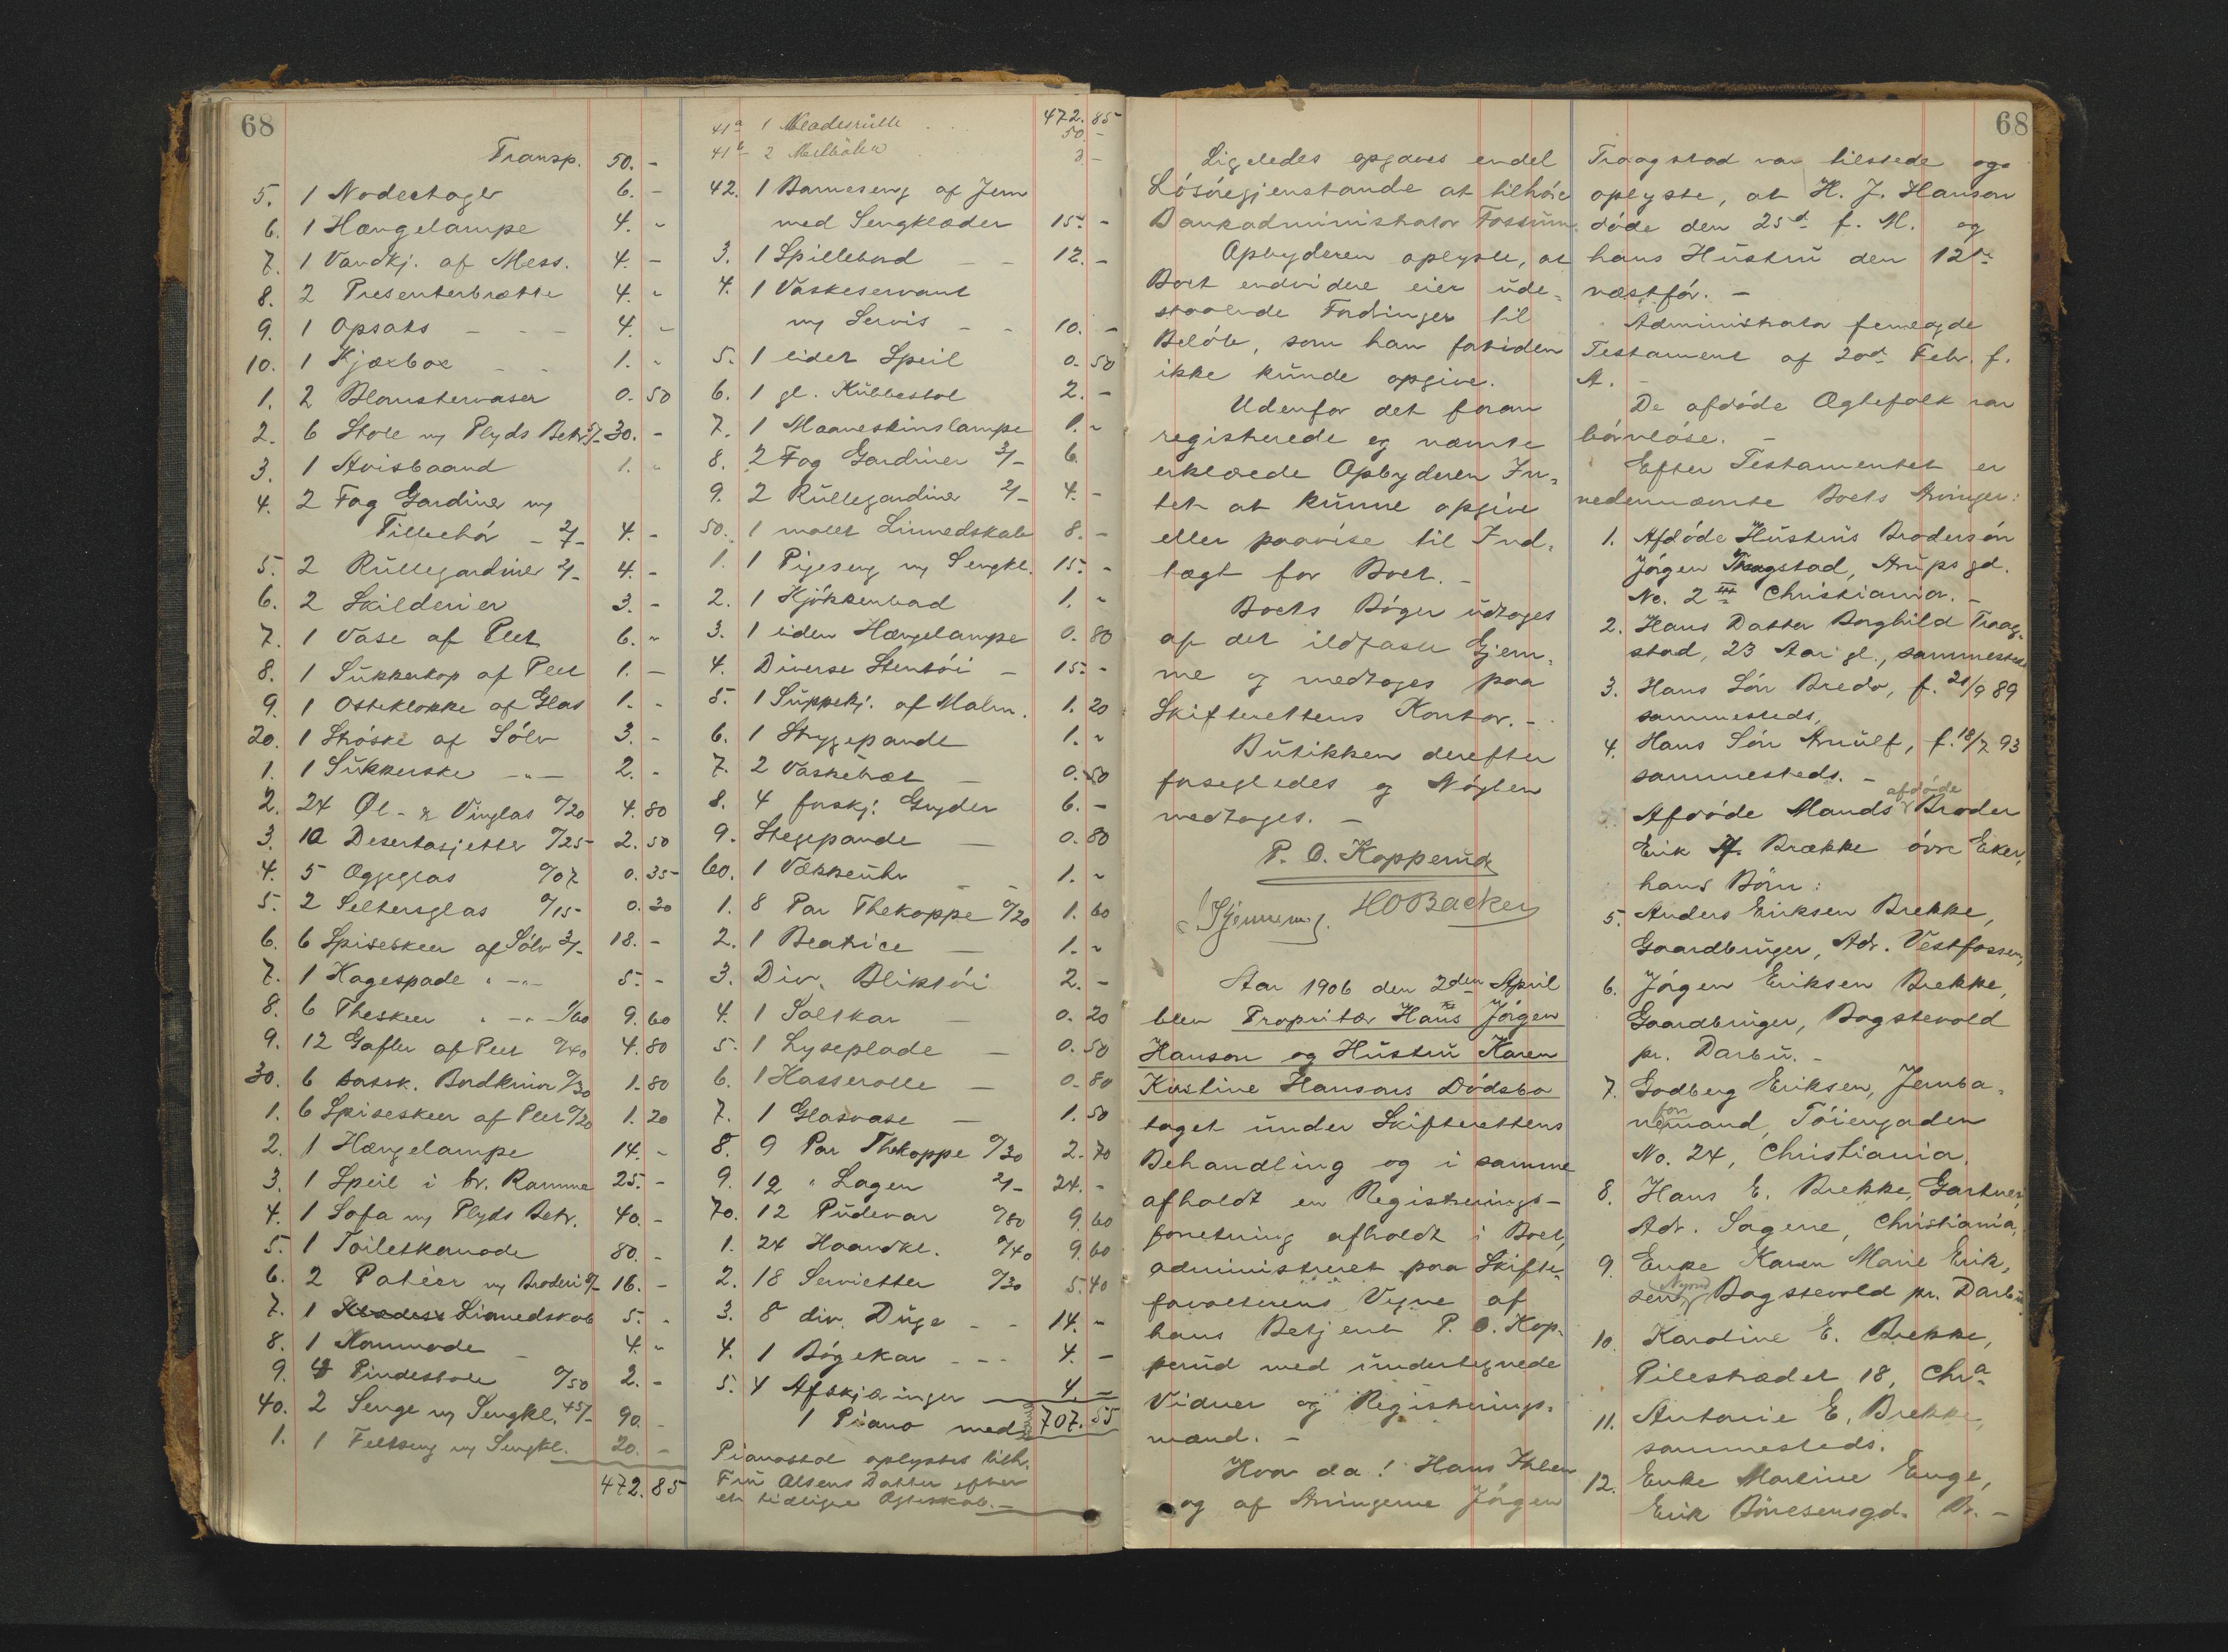 68
Transp. 50. -
5. 1 Nodestager 6. -
6. 1 Hængelampe 4. -
7. 1 Vandkj. af Mess. 4. -
8. 2 Presenterbrætte 4. -
9. 1 Opsats - - - 4. -
10. 1 Kjæxboxe - - 1. -
1. 2 Blomstervaser 0. 50
2. 6 Stole m/ Plyds Betr. 5/- 30. -
3. 1 Avisbaand 1. -
4. 2 Fag Gardiner m/
Tilbehör - 2/- 4. -
5. 2 Rullegardiner 2/- 4. -
6. 2 Skilderier 3. -
7. 1 Vase af Plet 6. -
8. 1 Sukkerkop af Plet 1. -
9. 1 Osteklokke af Glas 1. -
20. 1 Ströske af Sölv 3. -
1. 1 Sukkerske -"- 2. -
2. 24 Øl- & Vinglas 0/20 4. 80
3. 10 Desertasjetter 0/25 2. 50
4. 5 Æggeglas 0/07 0. 35
5. 2 Seltersglas 0/15 0. 30
6. 6 Spiseskeer af Sölv 3/- 18. -
7. 1 Kagespade " -"- 5. -
8. 6 Theskeer " -"- 1/60 9. 60
9. 12 Gafler af Plet 0/40 4. 80
30. 6 Dansk. Bordknive 0/30 1. 80
1. 6 Spiseskeer af Plet 0/20 1. 20
2. 1 Hængelampe 14. -
3. 1 Speil i br. Ramme 25. -
4. 1 Sofa m/ Plyds Betr. 40. -
5. 1 Toiletkomode 80. -
6. 2 Patéer m/ Broderi 8/- 16. -
7. 1 Linnedskab 5. -
8. 1 Kommode - 4. -
9. 4 Pindestole 0/50 2. -
40. 2 Senge m/ Sengkl. 45/- 90. -
1. 1 Feltseng m/ Sengkl. 20. -
472. 85
472. 85
41a 1 Klædesrulle . . . 50. -
41b 2 3 -
42. 1 Barneseng af Jern
med Sengklæder 15. -
3. 1 Spillebord - - 12. -
4. 1 Vaskeservant
m/ Servis - - 10. -
5. 1 lidet Speil 0. 50
6. 1 gl. Kubbestol 2. -
7. 1 Maaneskinslampe 1. -
8. 2 Fag Gardiner 3/- 6.
9. 2 Rullegardiner 2/- 4. -
50. 1 malet Linnedskab 8. -
1. 1 Pigeseng m/ Sengkl. 15. -
2. 1 Kjökkenbord 1. -
3. 1 liden Hængelampe 0. 80
4. Diverse Stentöi - 15. -
5. 1 Suppekj. af Malm. 1. 20
6. 1 Strygepande 1. -
7. 2 Vaskebræt - 0. 50
8. 4 forskj. Gryder 6. -
9. Stegepande - 0. 80
60. 1 Vækkeuhr - - 1. -
1. 8 Par Thekoppe 0/20 1. 60
2. 1 Beatrice - 1. -
3. Div. Bliktöi 2. -
4. 1 Saltkar - 0. 20
5. 1 Lyseplade - 0. 50
6. 1 Kasserolle - 0. 80
7. 1 Glasvase - 1. 50
8. 9 Par Thekoppe 0/30 2. 70
9. 12 " Lagen 2/- 24. -
70. 12 Pudevar 0/80 9. 60
1. 24 Haandkl. 0/40 9. 60
2. 18 Servietter 0/30 5. 40
3. 8 div. Duge - - 14. -
4. 1 Bögekar - - - 4. -
5. 4 Afskjæringer 4. -
1 Piano med 707. 55
Pianostol oplystes tilh.
Fru Olsens Datter efter
et tidligere Ægteskab. -
68
Ligeledes opgaves endel
Lösöregjenstande at tilhöre
Bankadministrator Fossum.
Opbyderen oplyste, at
Boet endvidere eier ude-
staaende Fordringer til
Belöb, som han fortiden
ikke kunde opgive.
Udenfor det foran
registrerede og nævnte
erklærede Opbyderen In-
tet at kunne opgive
eller paavise til Ind-
tægt for Boet. -
Boets Böger udtoges
af det ildfaste Gjem-
me og medtoges paa
Skifterettens Kontor. -
Butikken derefter
forsegledes og Nöglen
medtoges. -
P. O. Kopperud
HOBacker
Aar 1906 den 2den April
blev Propritær Hans Jörgen
Hanson og Hustru Karen
Kirstine Hansons Dödsbo
taget under Skifterettens
Behandling og i samme
afholdt en Registrerings-
forretning afholdt i Boet,
administreret paa Skifte-
forvalterens Vegne af
hans Betjent P. O. Kop-
perud med undertegnede
Vidner og Registrerings-
mænd. -
Hvor da! Hans Ihlen
og af Arvingerne Jörgen
Traagstad var tilstede og
oplyste, at H. J. Hanson
döde den 25de f. M. og
hans Hustru den 12te
næstfór. -
Administrator fremlagde
Testament af 20de Febr. f.
A. -
De afdöde Ægtefolk var
börnlöse. -
Efter Testamentet er
nedennævnte Boets Arvinger:
1. Afdöde Hustrus Brodersön
Jörgen Traagstad, Arupsgd.
No. 2 III Christiania. -
2. Hans Datter Borghild Traag-
stad, 23 Aar gl., sammesteds
3. Hans Sön Bredo, f. 21/9 89
sammesteds,
4. Hans Sön Arnulf, f. 18/7 93
sammesteds. -
afdöde
Afdöde Mands Broder
Erik A. Brække övre Eker,
hans Börn:
5. Anders Eriksen Brekke,
Gaardbruger, Adr. Vestfossen,
6. Jörgen Eriksen Brekke,
Gaardbruger, Bagstevold
pr. Darbu. -
7. Godberg Eriksen, Jernba-
neformand, Töiengaden
No. 24, Christiania.
8. Hans E. Brekke, Gartner,
Adr. Sagene, Christiania,
9. Enke Karen Marie Erik-
sen Bagstevold pr. Darbu
10. Karoline E. Brekke,
Pilestrædet 18, Chra
11. Antonie E. Brekke,
sammesteds.
12. Enke Martine Enge,
Erik Börresensgd. Dr. -